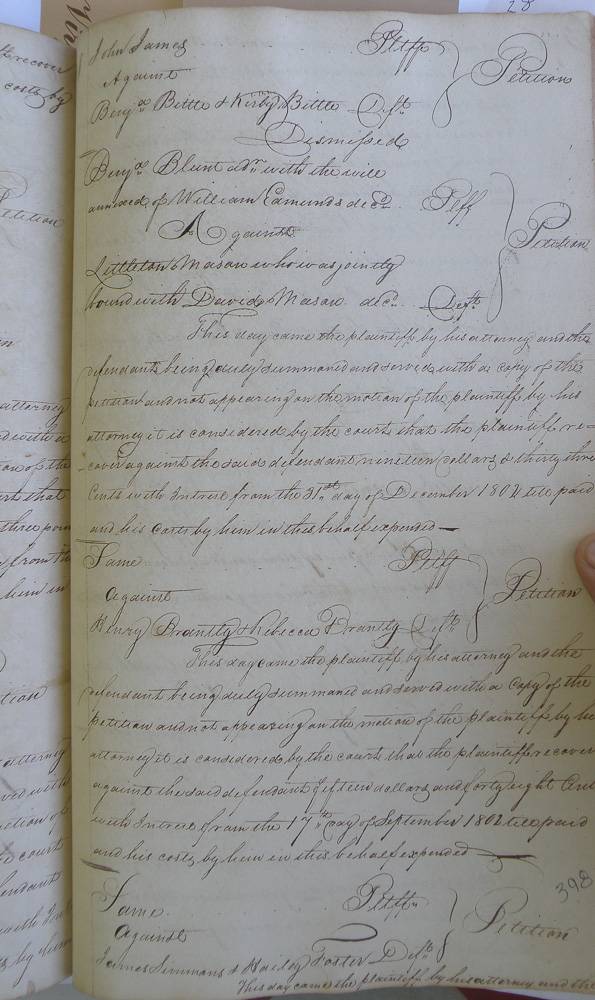 28
John James Pltff
Against Petition
Benja. Bittle & Kirby Bittle Deft
Dismissed
Benja. Blunt adr. with the will
annexed of William Edmunds decd. Pltff
Against Petition
Littleton Mason who was jointly
bound with David Mason decd. Deft.
This day came the plaintiff by his attorney and the
defendant being duly summoned and served with a copy of the
petition and not appearing on the motion of the plaintiff by his
attorney it is considered by the court that the plaintiff re=
cover against the said defendant nineteen dollars & thirty three
Cents with Intrest from the 31st day of December 1802 till paid
and his costs by him in this behalf expended
Same Pltff
against Petition
Henry Brantly & Rebecca Brantly Deft.
This day came the plaintiff by his attorney and the
defendant being duly summoned and served with a Copy of the
petition and not appearing on the motion of the plaintiff by his
attorney it is considered by the court that the plaintiff recover
against the said defendant fifteen dollars and forty eight Cents
with Intrest from the 17th day of September 1802 till paid
and his costs by him in this behalf expended
398
Same Pltff
against Petition
James Simmons & Foster Deft
This day came the plaintiff by his attorney and the